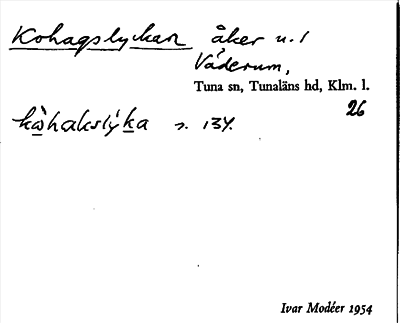 Kohagslyckan åker u. 1
Väderum,
Tuna sn, Tunaläns hd, Klm. l.
26
kòhakslýka s. 134.
Ivar Modéer 1954